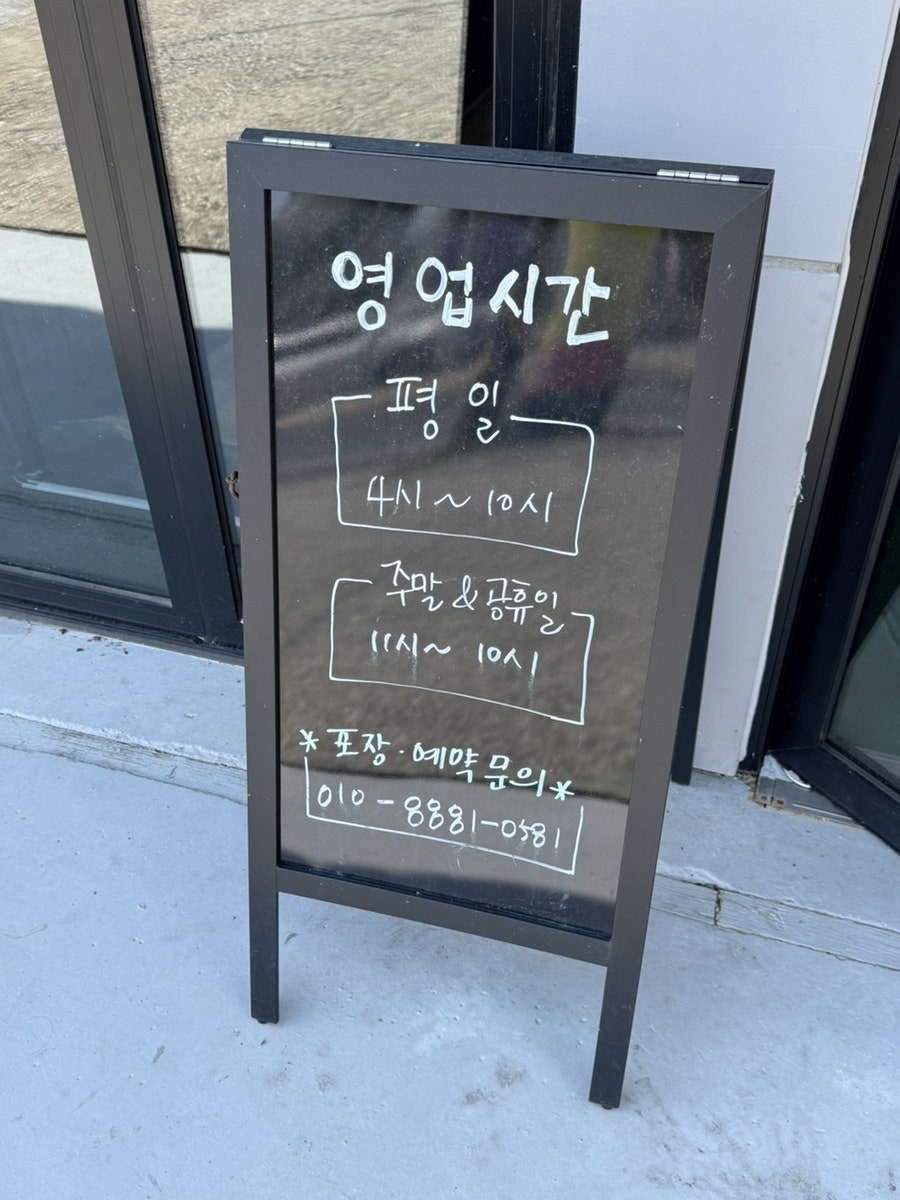 영업시간
평일
4시~10시
주말&공휴일
11시~ 10시
*포장·예약문의*
010-8881-0581